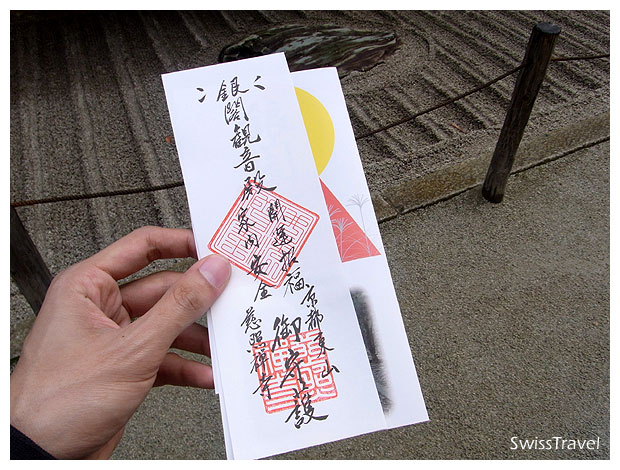 銀閣観音殿
御守護
開運招福
家内安全
京都東山
慈照禅寺
SwissTravel